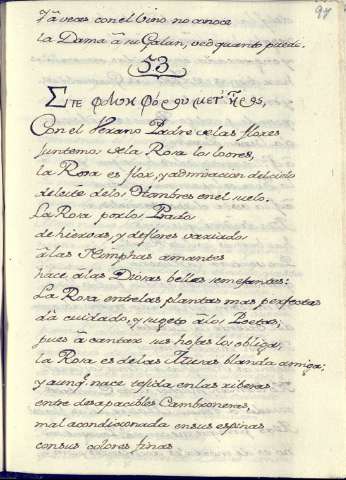 97
Y â veces con el Vino no conoce
la Dama â su Galan, ved quanto puede.
53
Στε φαιον
Con el Verano Padre de las flores
juntemos de la Rosa los loores,
la Rosa es flor, y admiracion del cielo
deleite de los Hombres en el suelo.
La Rosa por los Prados
de hiervas, y de flores variado
â las Nimphas amantes
hace â las Diosas bellas semejantes:
La Rosa entre las plantas mas perfectas
dâ cuidado, y sugeto â los Poetas,
pues â cantar sus hojas los obliga;
la Rosa es de las Musas blanda amiga;
y aunq. nace texida en las riberas
entre desapacibles Cambroneras,
mal acondicionada en sus espinas
con sus colores finas